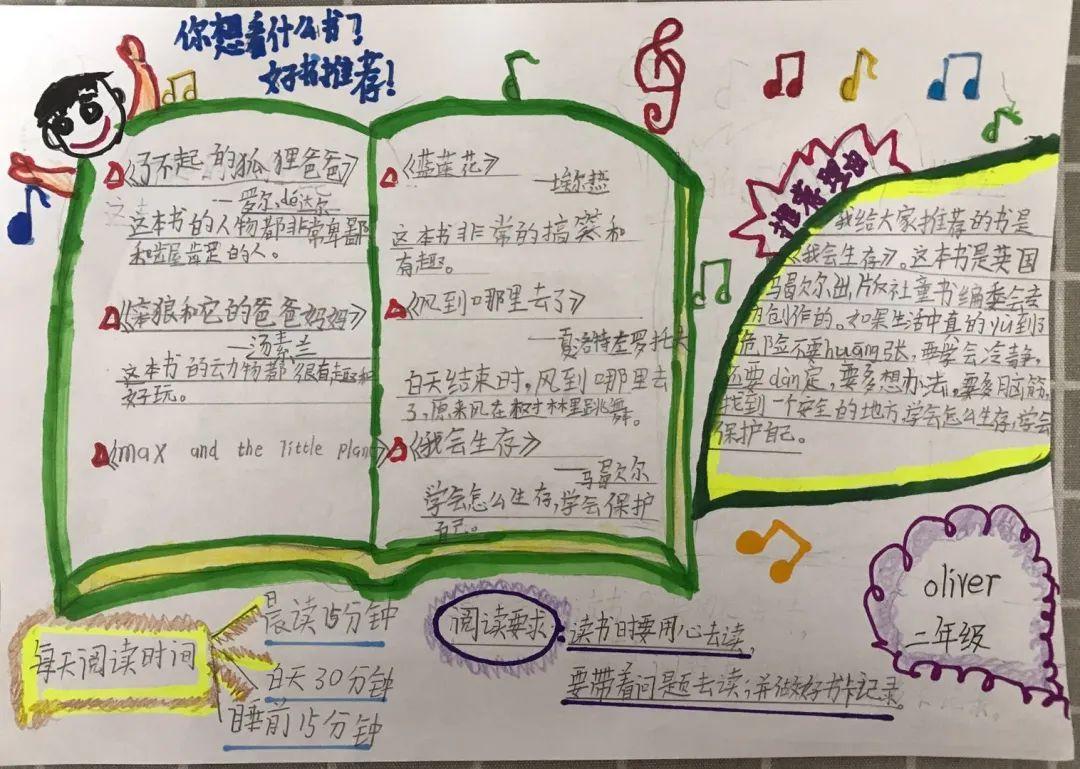 你想看什么书？
好书推荐！
《了不起的狐狸爸爸》
—罗尔.dá达尔
这本书的人物都非常卑鄙
和龌龊的人。
《笨狼和它的爸爸妈妈》
—汤素兰
这本书的动物都很有趣和
好玩。
《max and the little plant》
《蓝莲花》
—埃尔热
这本书非常的搞笑和
有趣。
《风到哪里去了》
—夏洛特左罗托夫
白天结束时，风到哪里去
了，原来风在树林里跳舞。
《我会生存》
—马曷尔
学会怎么生存，学会保护
自己。
推荐理由
我给大家推荐的书是
《我会生存》。这本书是英国
马曷尔出版社童书编委会
创作的。如果生活中真的遇到了
危险不要huāng张，要学会冷静，
还要dàn定，要多想办法，要多动脑筋，
找到一个安全的地方，学会怎么生存，学会
保护自己。
每天阅读时间
晨读15分钟
白天30分钟
睡前15分钟
阅读要求：读书时要用心去读，
要带着问题去读；并做好书卡记录。
oliver
二年级